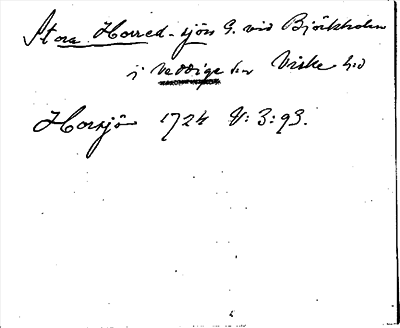 Stora Horred-sjön G. vid Björkholm
i Veddige sn Viske hd
Horsjö 1724 V:3:93.